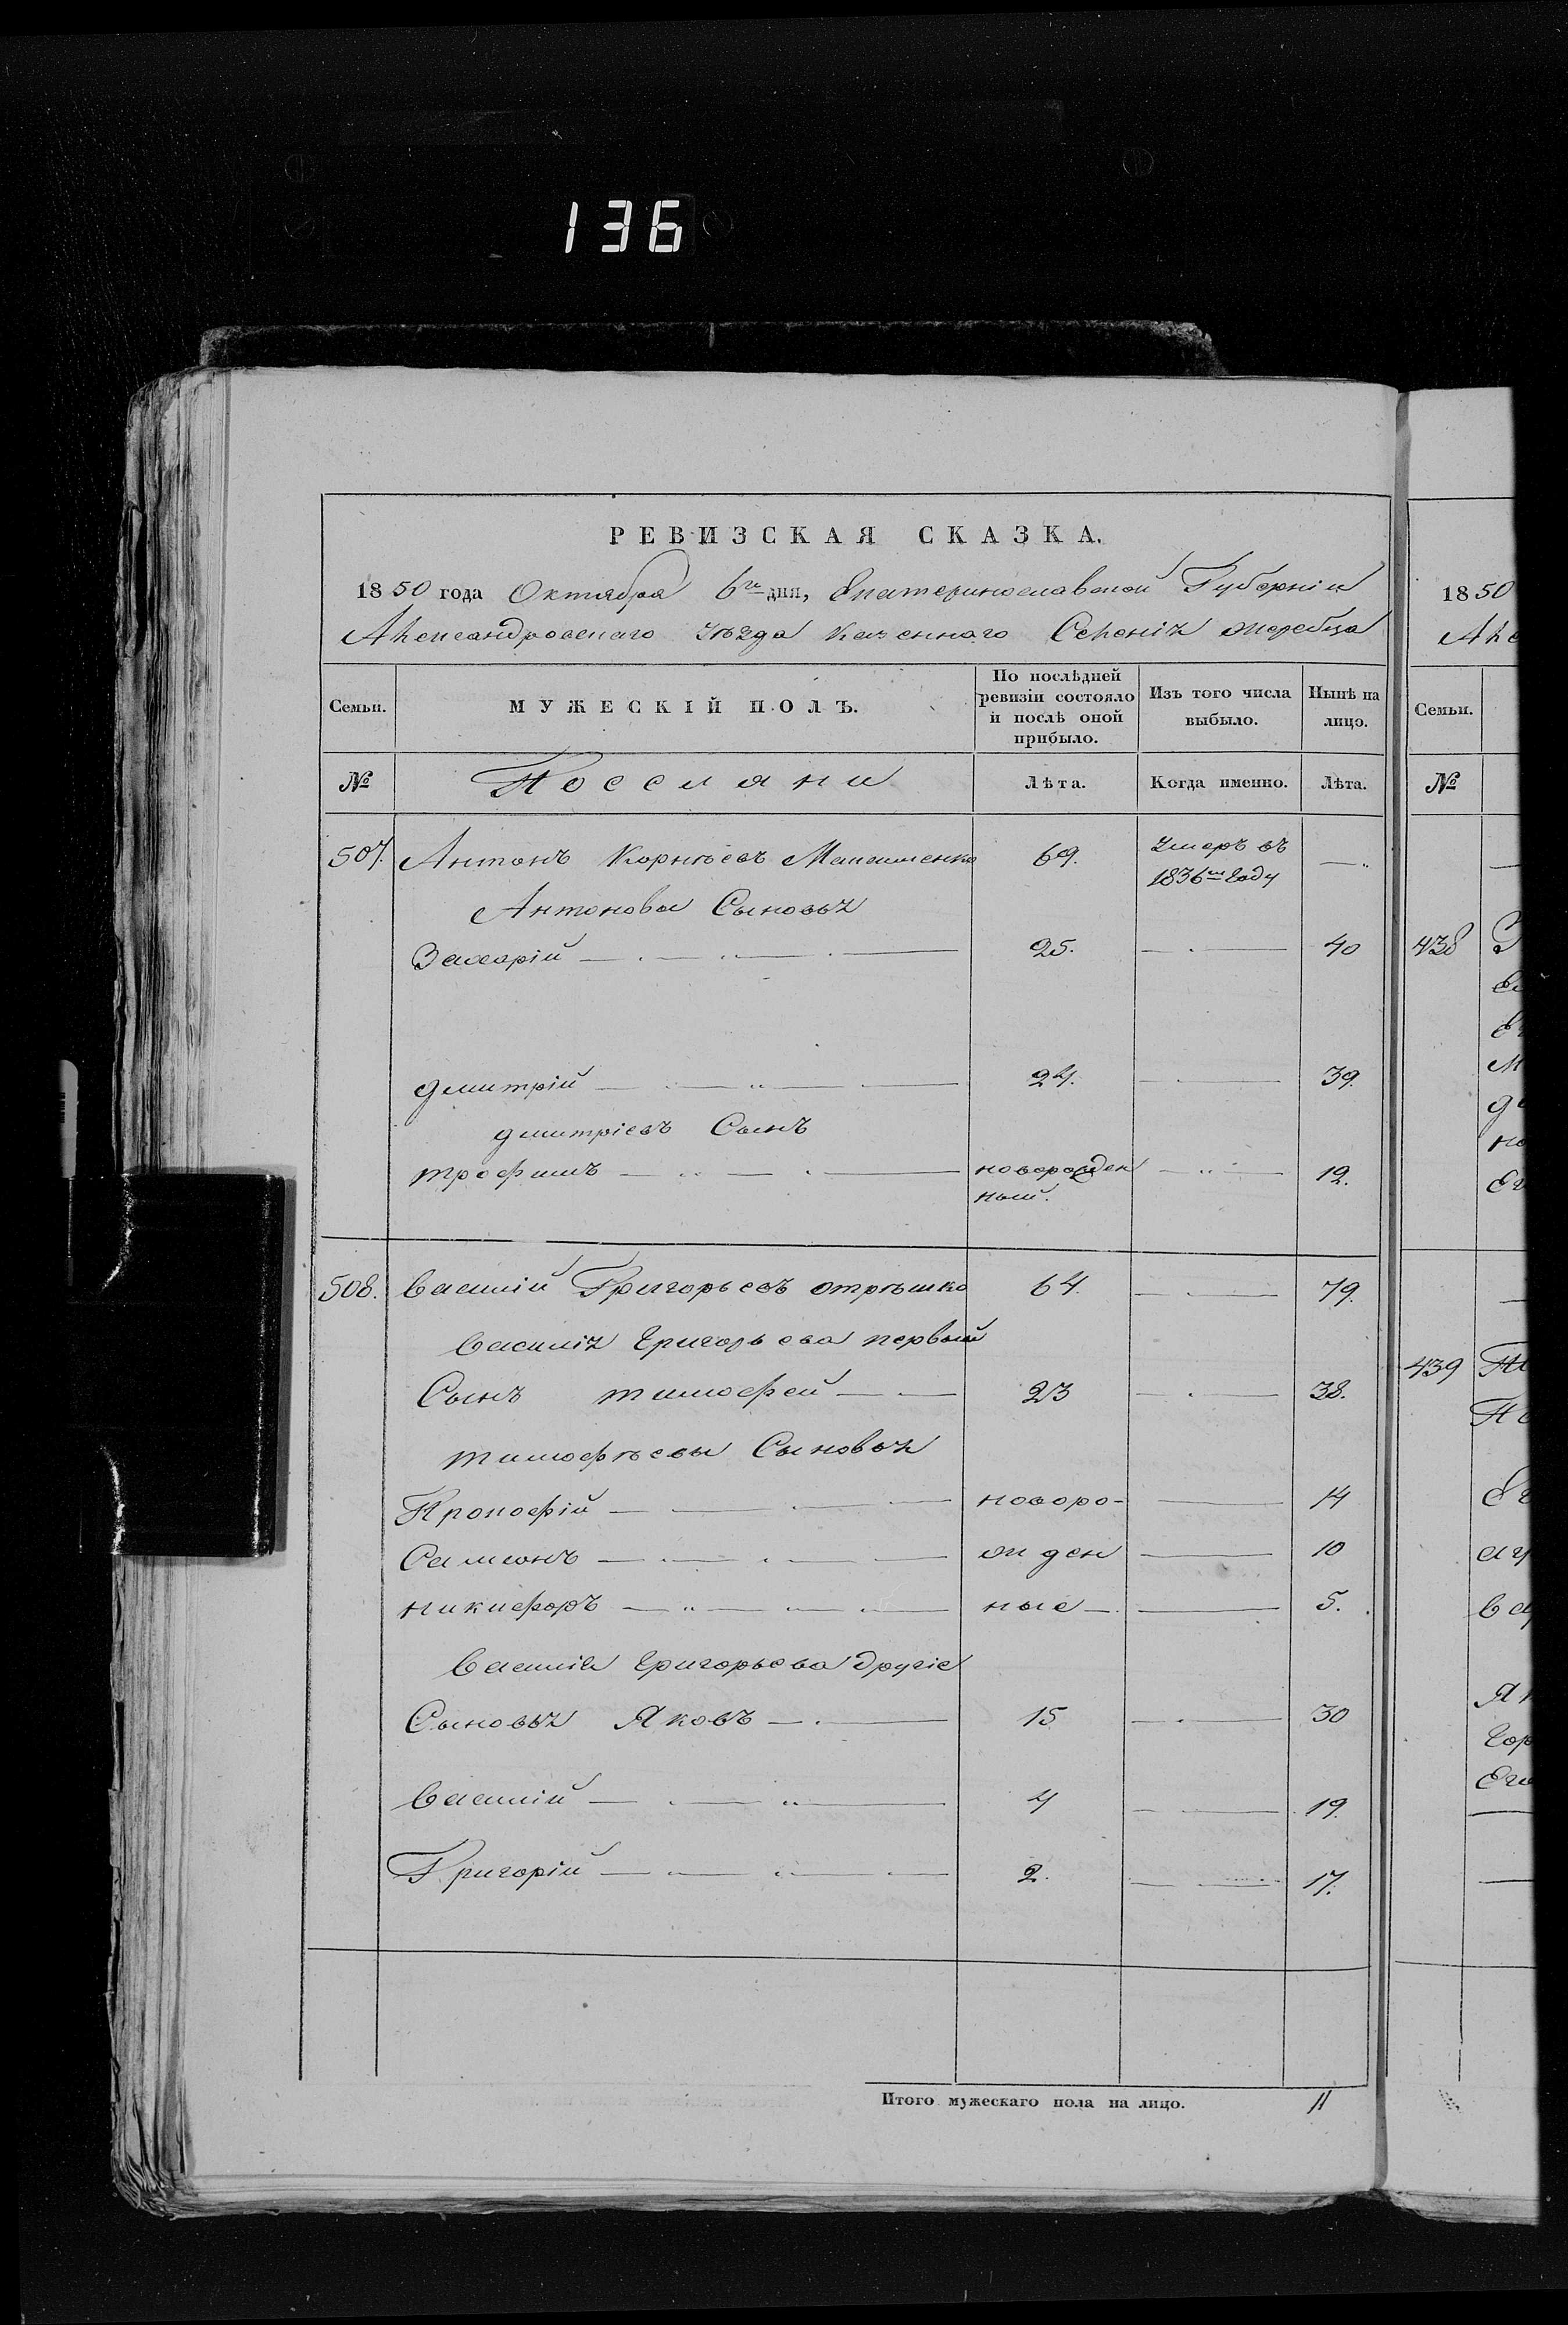 136
РЕВИЗСКАЯ СКАЗКА.
1850 года Октября 6го дня, Екатеринославской Губерніи
Александровскаго уѣзда казеннаго Селенія жеребца
Семьи.
МУЖЕСКІЙ ПОЛЪ.
По послѣдней ревизіи состояло и послѣ оной прибыло.
Изъ того числа выбыло.
Нынѣ на лицо.
№
Поселяни
Лѣта.
Когда именно.
Лѣта.
507. Антонъ Корнѣевъ Максименко 69. Умеръ въ 1836м Году —
Антоновы Сыновья
Захарій 25. — 40
дмитрій 24. — 39.
дмитріевъ Сынъ
трофимъ новорожден ный. — 12.
508. Василій Григорьевъ отрѣшко 64. — 79.
Василія Григорьева первый
Сынъ тимофей 23 — 38.
тимофѣевы Сыновья
Прокофій новоро- — 14
Самсонъ жден — 10
никифоръ ные — 5.
Василія Григорьева другіе
Сыновья Яковъ 15 — 30
Василій 4 — 19.
Григорій 2. — 17.
Итого мужескаго пола на лицо. 11
1850
Але
Семьи.
№
438
439